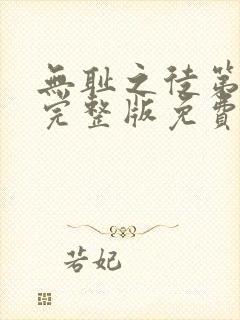 無耻之徒第
完整版免費
若妃